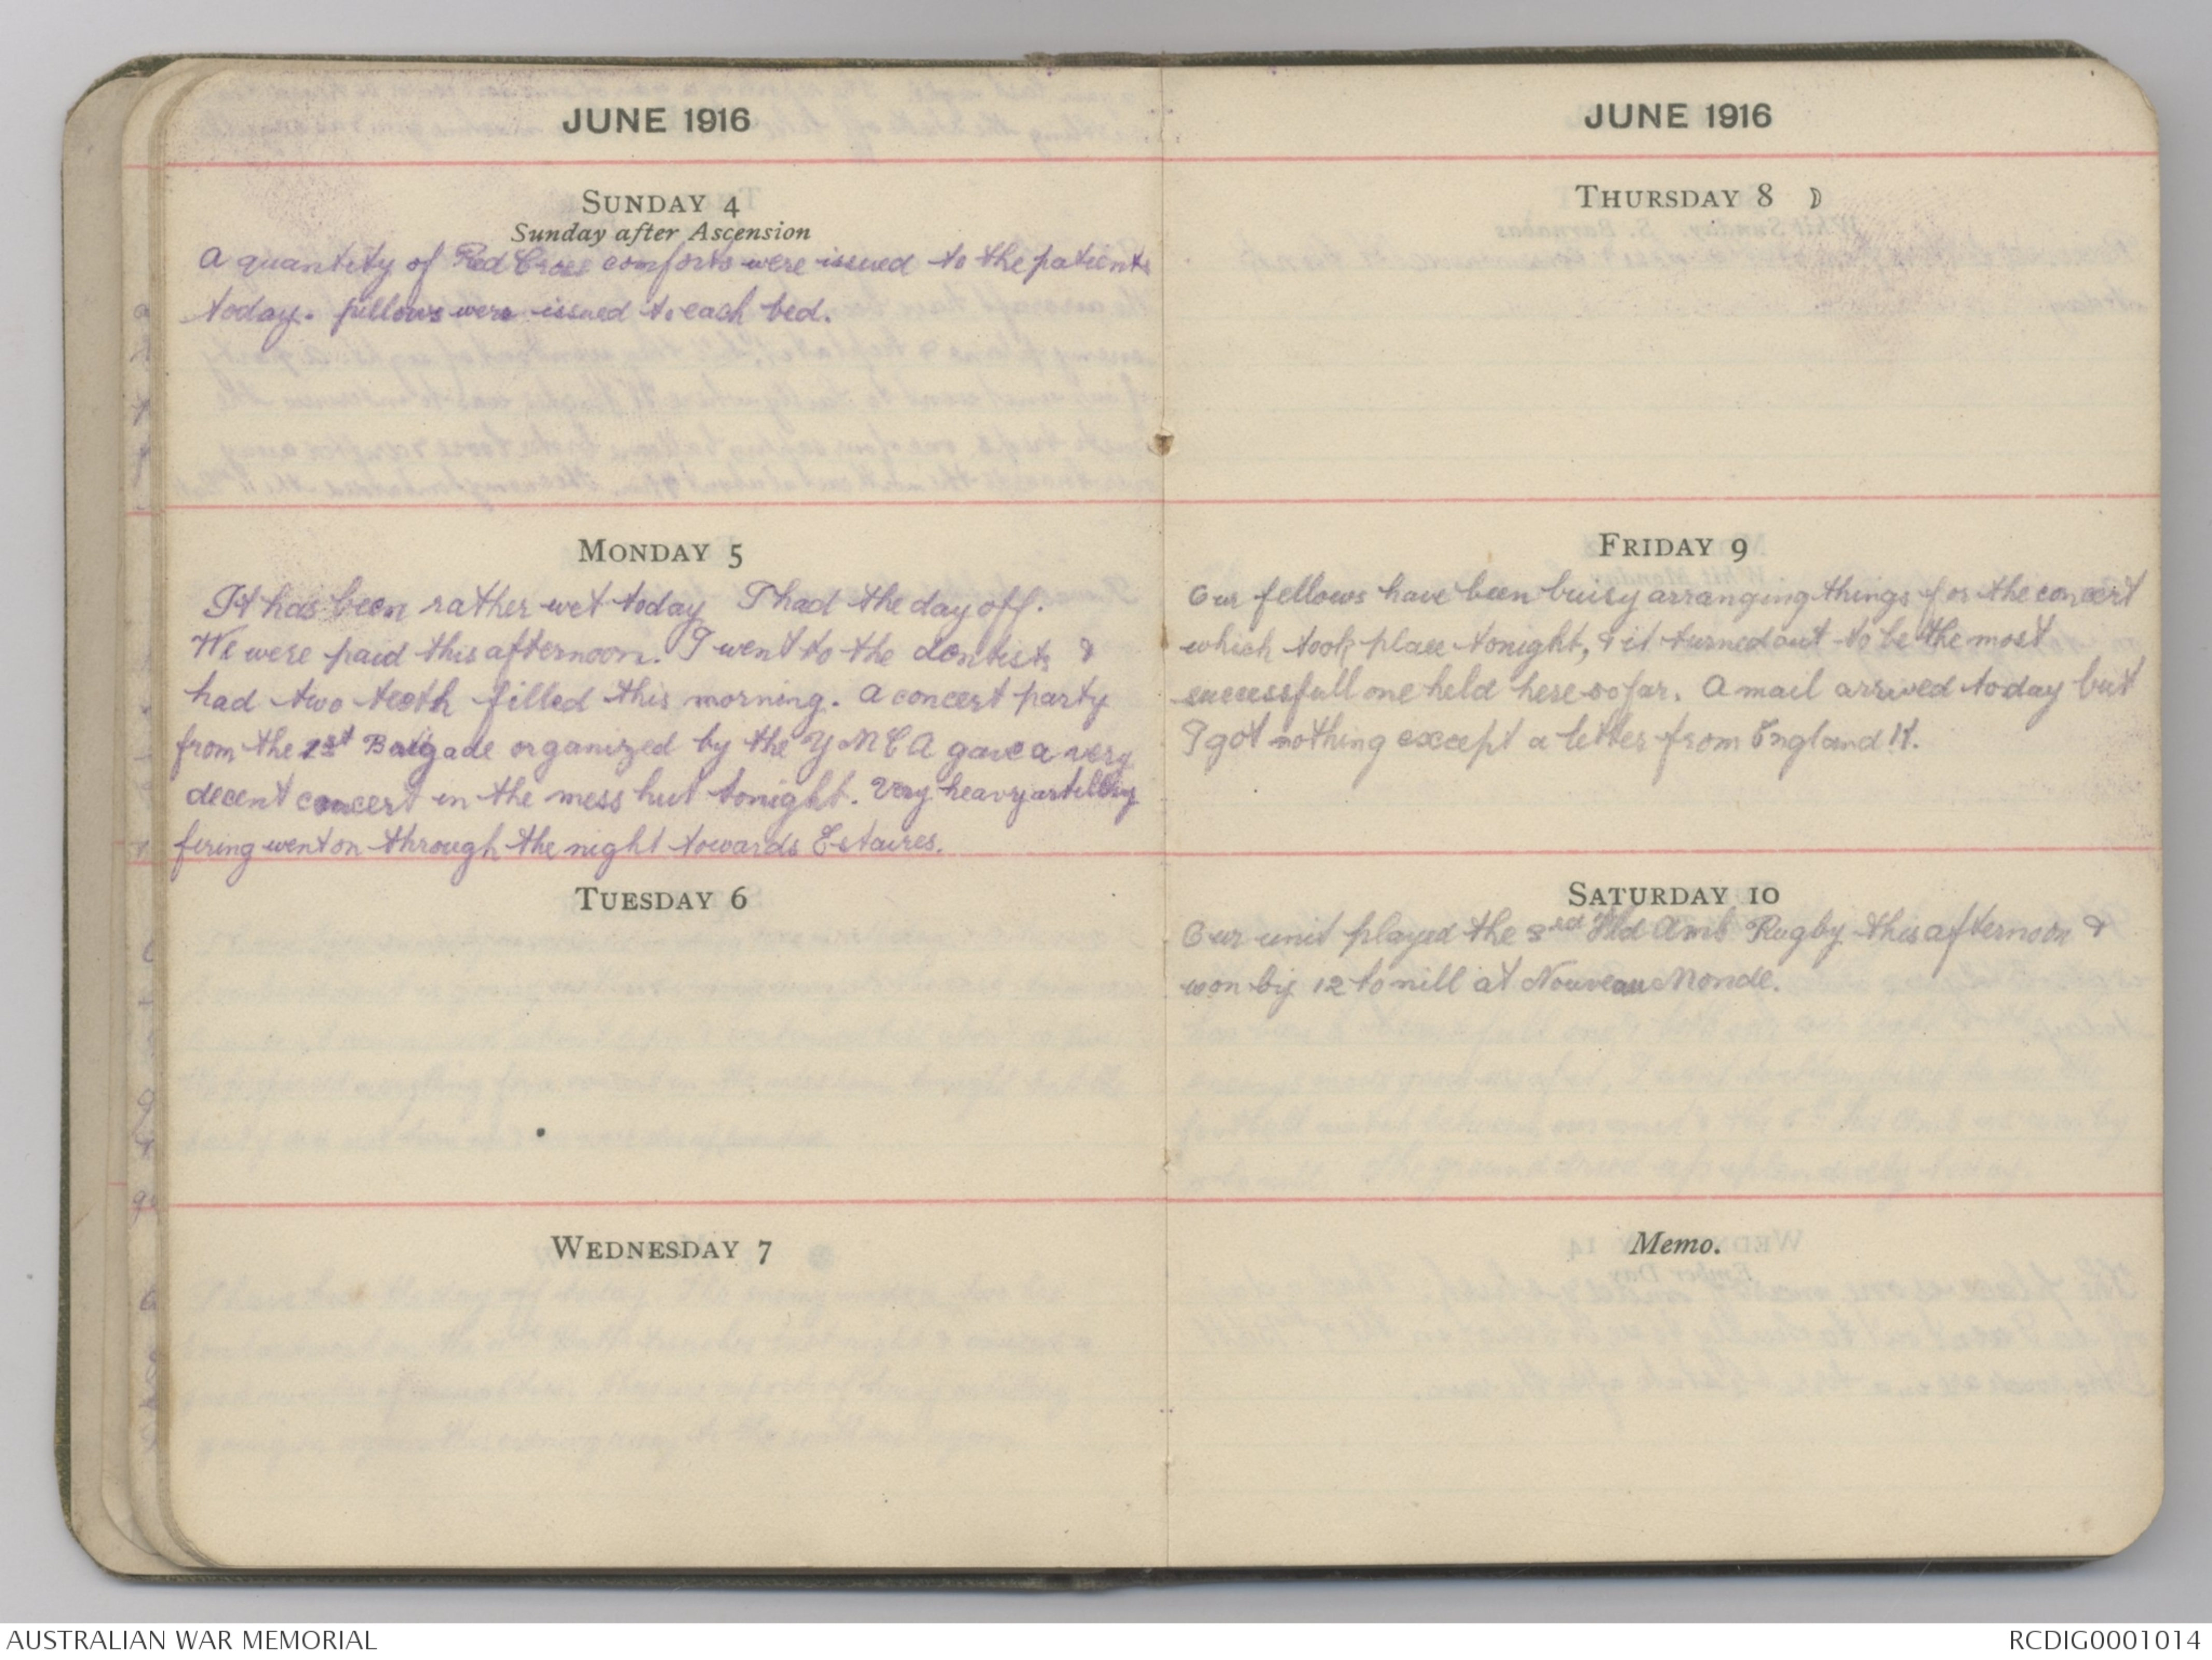 JUNE 1916
SUNDAY 4
Sunday after Ascension
A quantity of Red Cross comforts were issued to the patients
today. pillows were issued to each bed.
MONDAY 5
It has been rather wet today I had the day off.
We were paid this afternoon. I went to the dentists &
had two teeth filled this morning. A concert party
from the 1st Brigade organized by the YMCA gave a very
decent concert in the mess hut tonight. Very heavy artillery
firing went on through the night towards Estaires.
TUESDAY 6
WEDNESDAY 7
JUNE 1916
THURSDAY 8
FRIDAY 9
Our fellows have been buisy arranging things for the concert
which took place tonight, & it turned out to be the most
successfull one held here so far. A mail arrived today but
I got nothing except a letter from England!!.
SATURDAY 10
Our unit played the 3rd Fld Amb Rugby this afternoon &
won by 12 to nill at Nouveau Monde.
Memo.
AUSTRALIAN WAR MEMORIAL
RCDIG0001014